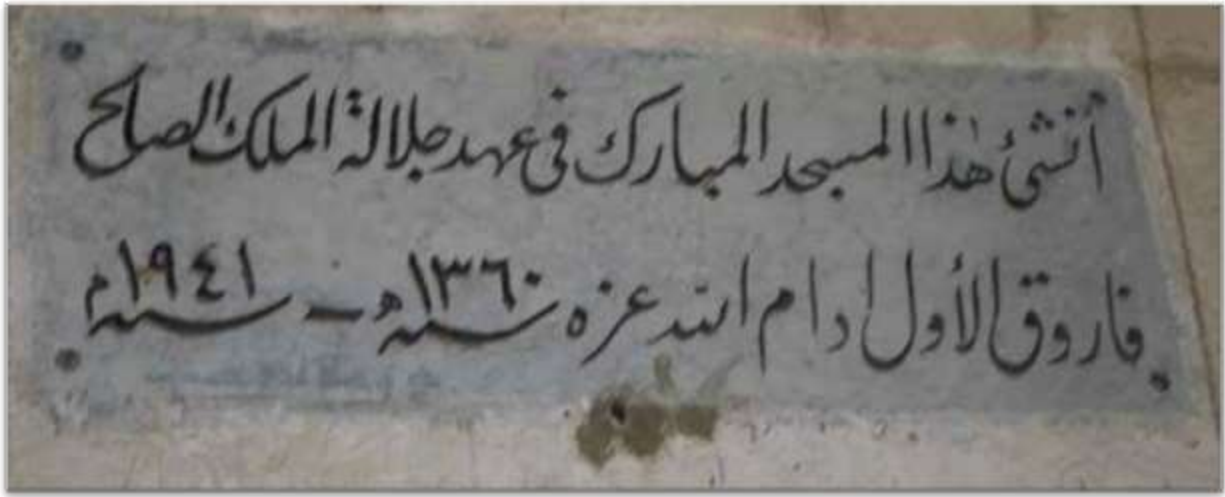 أنشئ هذا المسجد المبارك فى عهد جلالة الملك الصالح
فاروق الأول ادام الله عزه سنة ١٣٦٠ه – سنة ١٩٤١م